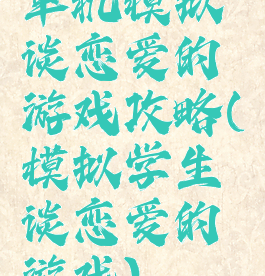 单机模拟
谈恋爱的
游戏攻略(
模拟学生
谈恋爱的
游戏)